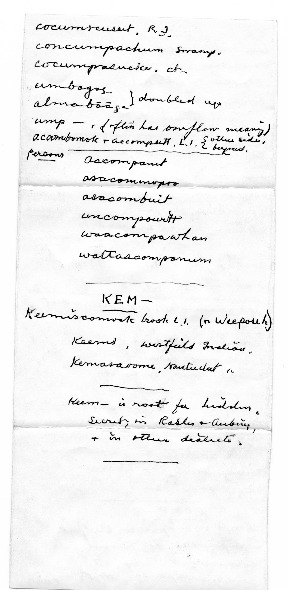 cocumscussett. R.I.
concumpachum swamp.
cocumpaucke. ct.
umbagog
alnabaag. } doubled up
ump — . (often has overflow meaning)
acombomok & accompsett L.I. { other side, beyond.
persons accompanit
asacommopoo
asacombuit
uncompowitt
waacompawhan
wattascompanum
KEM —
Keemiscomock brook L.I. (or Weepoock)
Kaems, westfield Indian.
Kemasavome, Nantucket "
Kem — is root for hidden,
Secret, in Rasles & Aubery,
& in other dialects.